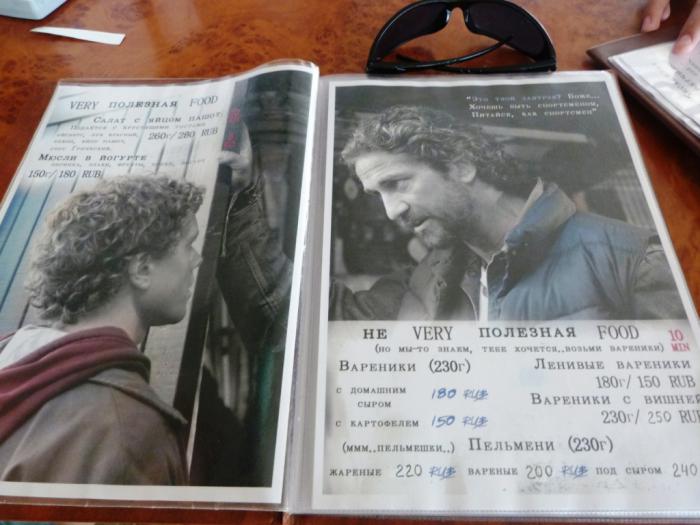 VERY ПОЛЕЗНАЯ FOOD
Салат с яйцом пашот
260г/280 RUB
Мюсли в йогурте
150г/180 RUB
"Это твой завтрак? Боже...
Хочешь быть спортсменом,
Питайся, как спортсмен"
НЕ VERY ПОЛЕЗНАЯ FOOD
10 MIN
(но мы-то знаем, тебе хочется,,возьми вареники)
Вареники (230г)
с домашним
сыром 180 RUB
с картофелем 150 RUB
Ленивые вареники
180г/ 150 RUB
Вареники с вишне
230г/ 250 RUB
(ммм,,пельмешки,,) Пельмени (230г)
жареные 220 RUB вареные 200 RUB под сыром 240